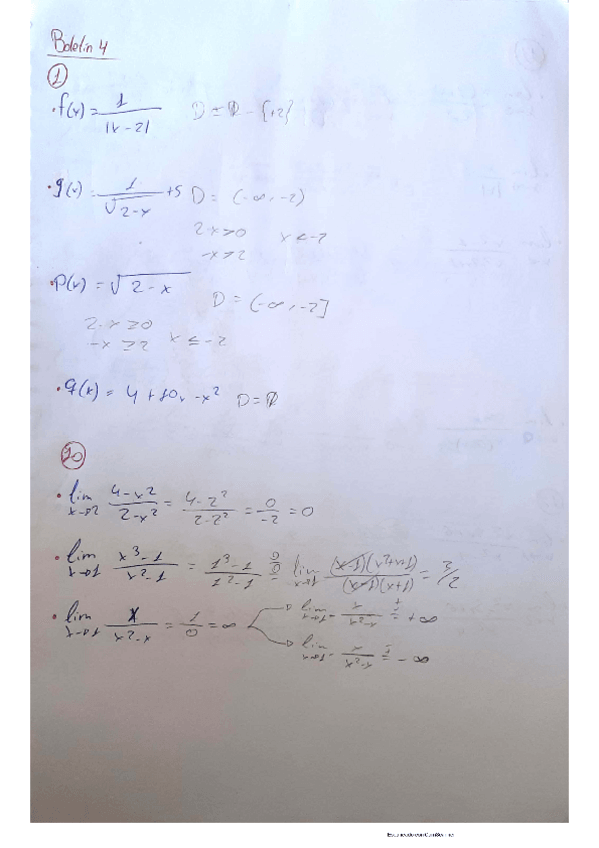 Boletín 4
①
· f(x) = 1/|x-2| D = ℝ - {+2}
· g(x) = 1/√(2-x) + 5 D = (-∞, -2)
2-x > 0 x < -2
-x > 2
· p(x) = √(2-x) D = (-∞, -2]
2-x ≥ 0
-x ≥ 2 x ≤ -2
· q(x) = 4 + 10x - x² D = ℝ
⑩
· lim x→2 (4-x²)/(2-x²) = (4-2²)/(2-2²) = 0/-2 = 0
· lim x→1 (x³-1)/(x²-1) = (1³-1)/(1²-1) = 0/0 = lim x→1 (x-1)(x²+x+1)/(x-1)(x+1) = 3/2
· lim x→1 x/(x²-x) = 1/0 = ∞
lim x→1+ x/(x²-x) = +∞
lim x→1- x/(x²-x) = -∞
Escaneado con CamScanner